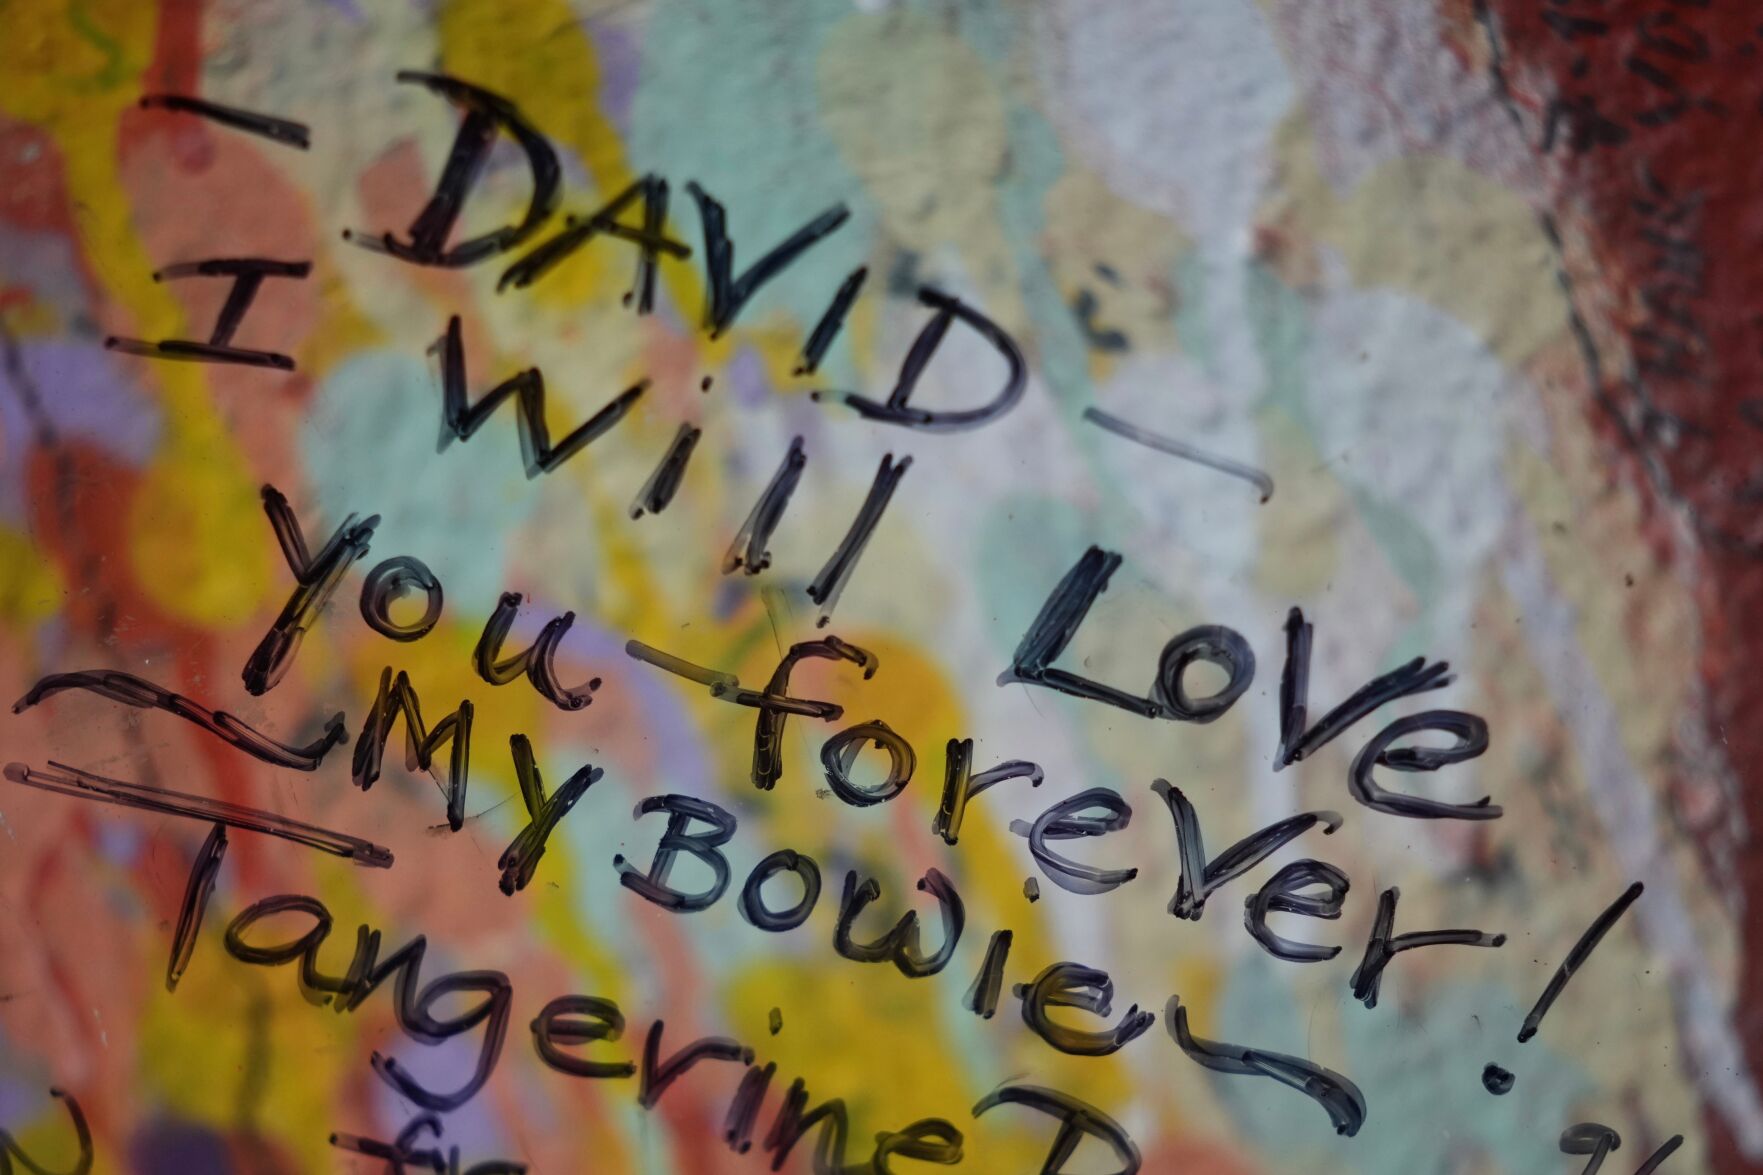 - DAVID -
I Will Love
You forever!
~ My Bowie ~
Tangerine